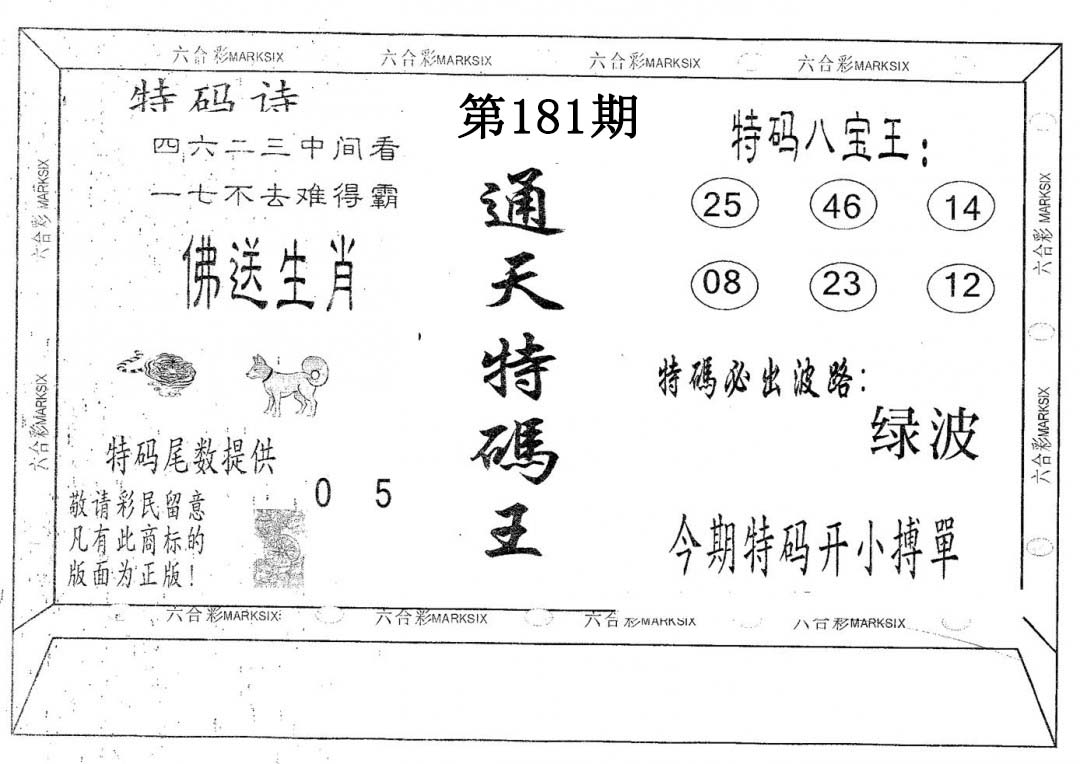 六合彩MARKSIX 六合彩MARKSIX 六合彩MARKSIX 六合彩MARKSIX
特码诗
四六二三中间看
一七不去难得霸
佛送生肖
特码尾数提供
0 5
敬请彩民留意
凡有此商标的
版面为正版!
第181期
通天特碼王
特码八宝王:
25 46 14
08 23 12
特碼必出波路:
绿波
今期特码开小搏單
六合彩MARKSIX
六合彩MARKSIX
六合彩MARKSIX
六合彩MARKSIX
六合彩MARKSIX 六合彩MARKSIX 六合彩MARKSIX 六合彩MARKSIX